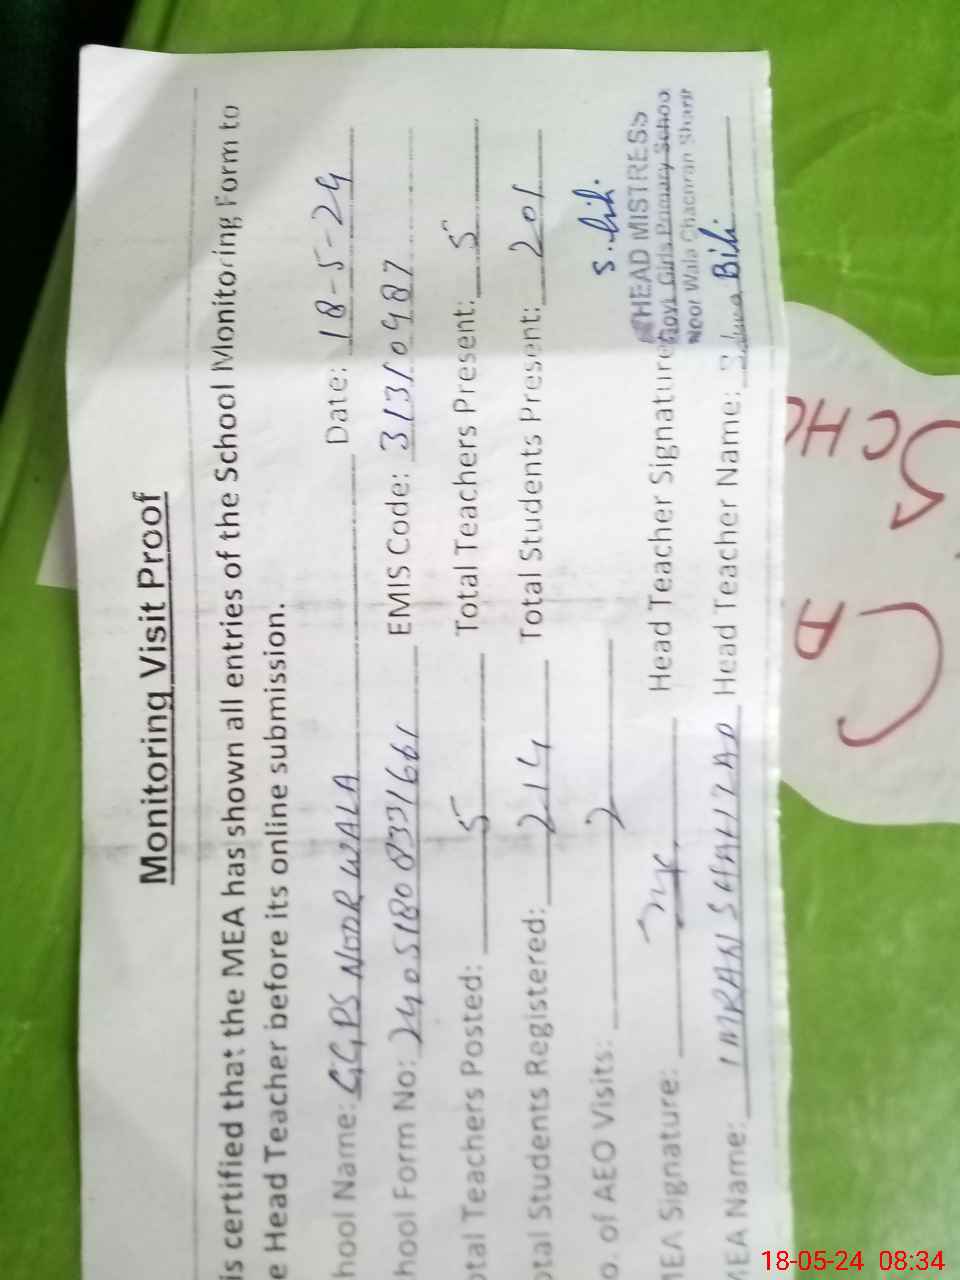 Monitoring Visit Proof
is certified that the MEA has shown all entries of the School Monitoring Form to
e Head Teacher before its online submission.
hool Name: GGPS NOOR WALA Date: 18-5-24
hool Form No: 24051808331661 EMIS Code: 31310487
otal Teachers Posted: 5 Total Teachers Present: 5
otal Students Registered: 214 Total Students Present: 201
o. of AEO Visits: 2
MEA Signature: Head Teacher Signature
S. bibi.
HEAD MISTRESS
Govt. Girls Primary Schoo
Noor Wala Chachran Sharif
MEA Name: IMRAN SHAHZAD Head Teacher Name: Bibi
SCHO
D
18-05-24 08:34